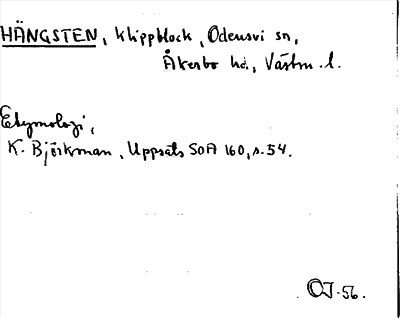 HÄNGSTEN, klippblock, Odensvi sn,
Åkerbo hd., Västm. l.
Etymologi,
K. Björkman, Uppsats SOA 160, s. 54.
OJ. 56.